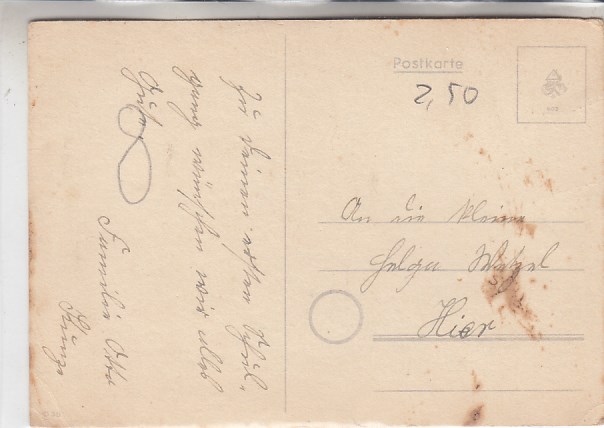 Zu Deinem ersten Schul-
gang wünschen wir alles
Gute
Familie Otto
Kunze
Postkarte
2,50
An die kleine
Helga Wetzel
Hier